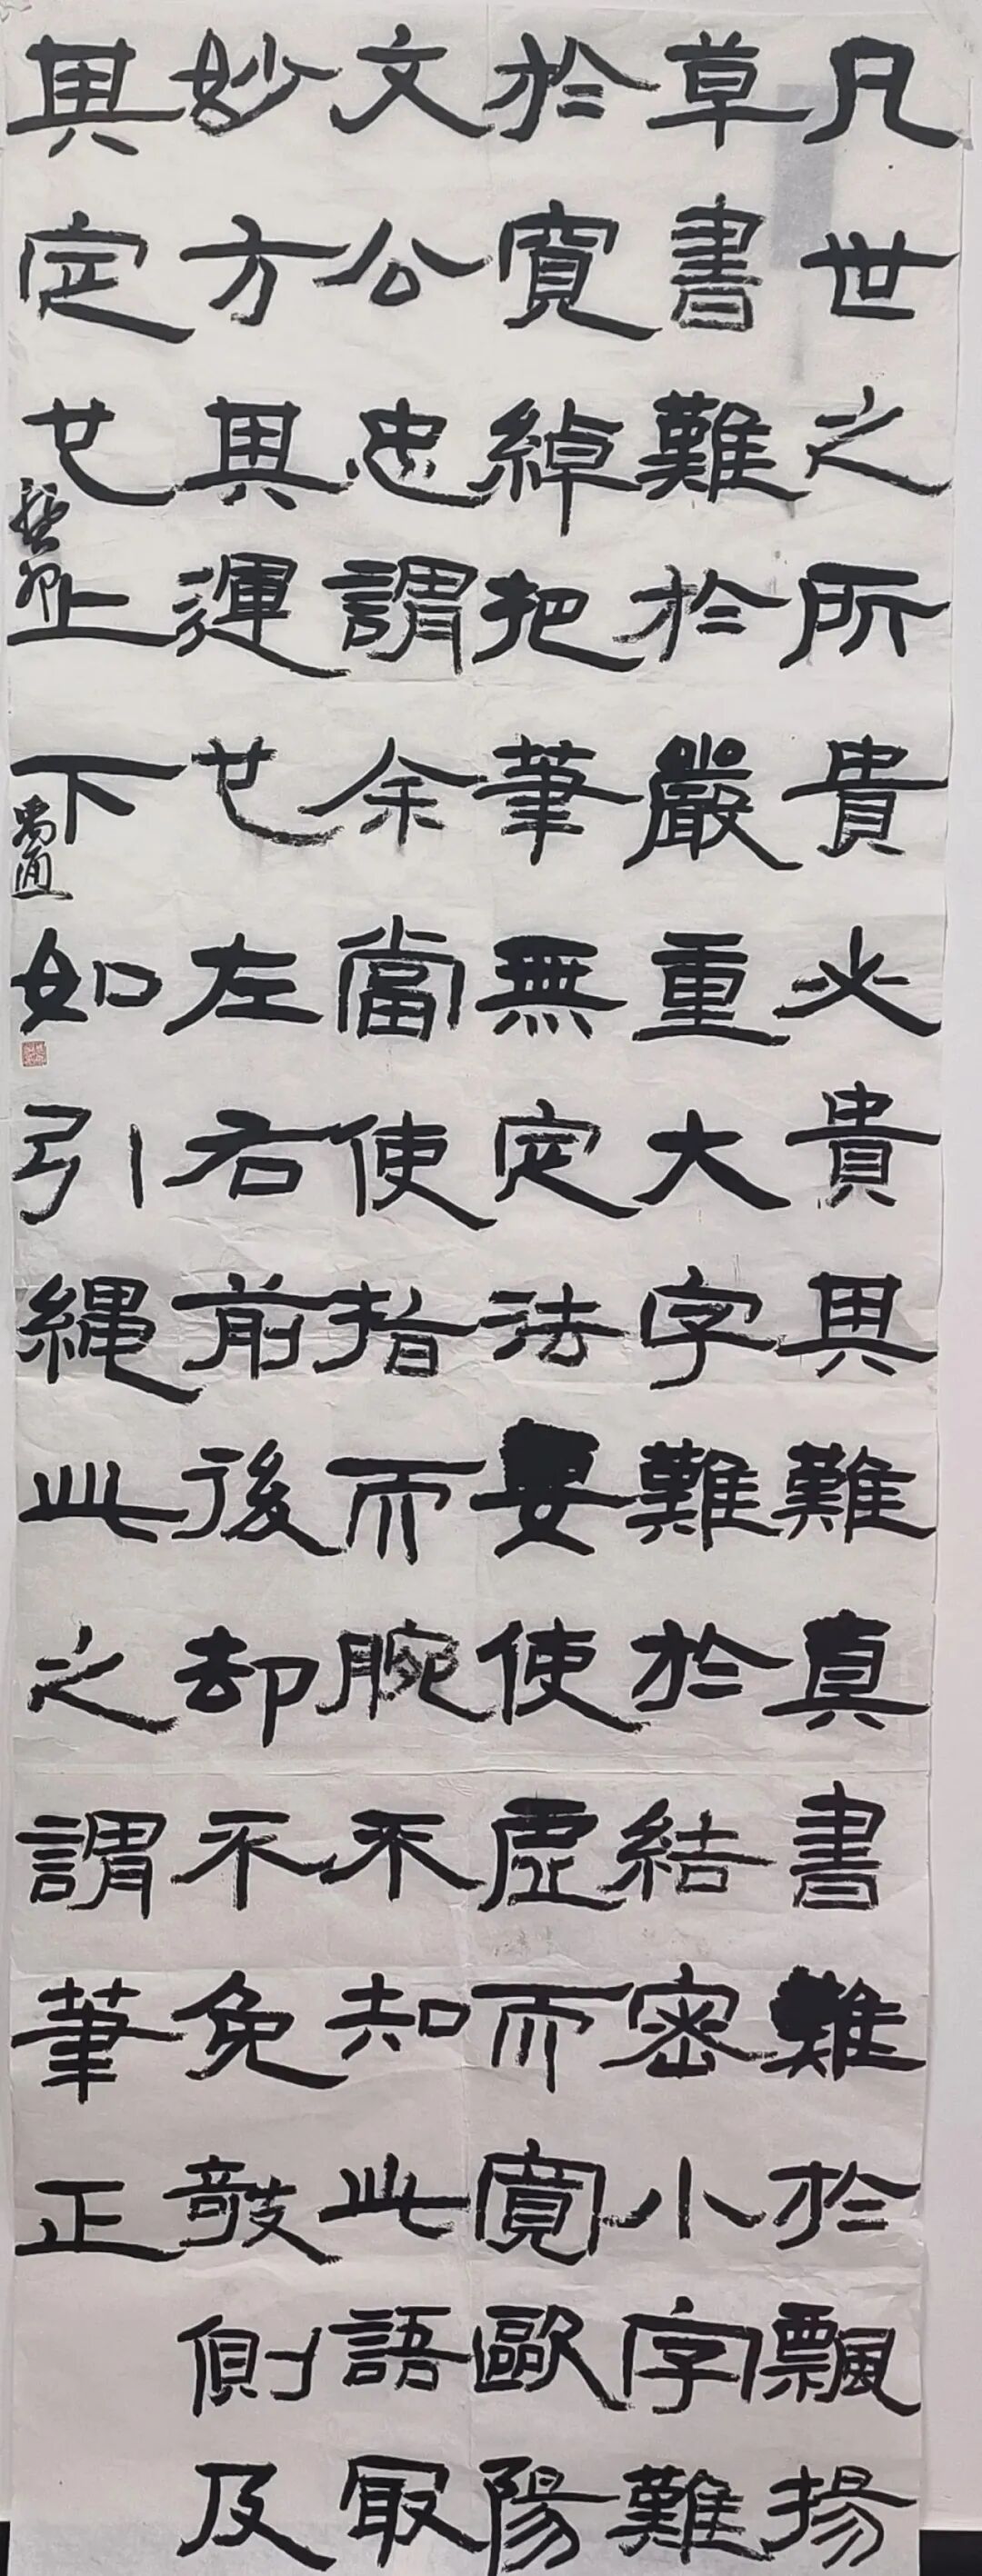 凡世之所貴必貴其難真書難於飄揚
草書難於嚴重大字難於結密小字難
於寬綽把筆無定法要使虛而寬歐陽
文公忠謂余當使指而腕不知此語最
妙方其運也左右前後却不免欹側及
其定也上下如引繩此之謂筆正
癸卯